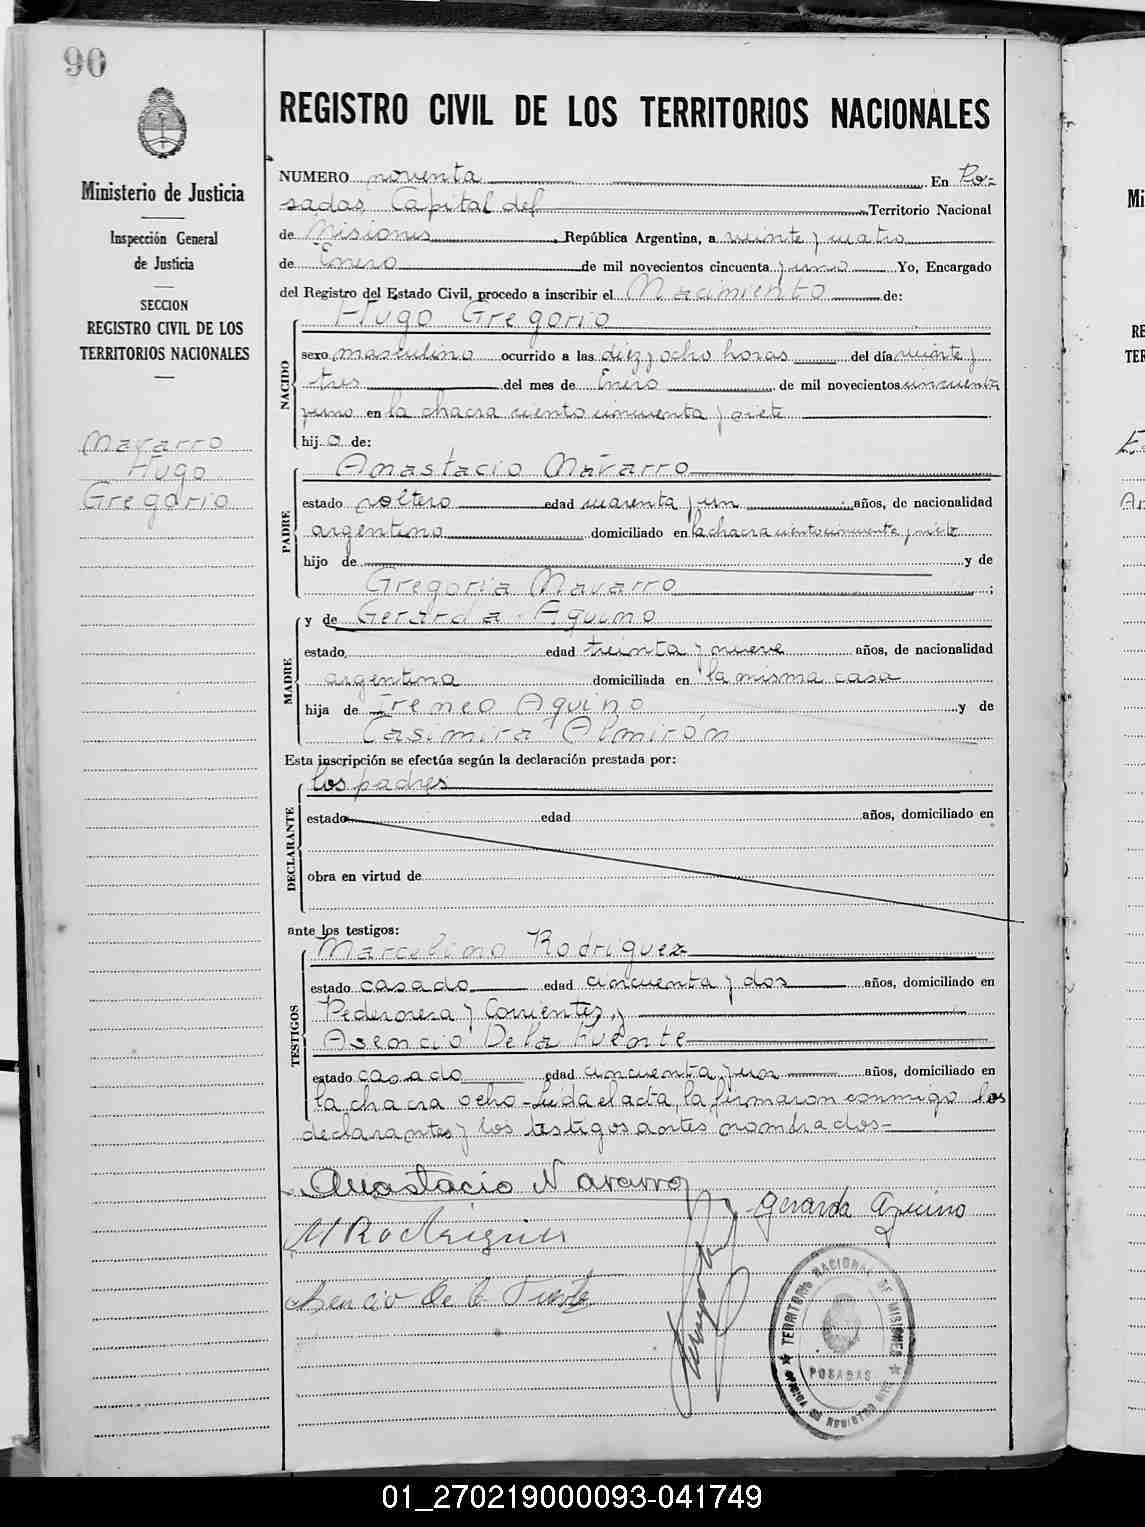 90
Ministerio de Justicia
Inspección General
de Justicia
SECCION
REGISTRO CIVIL DE LOS
TERRITORIOS NACIONALES
Navarro
Hugo
Gregorio
REGISTRO CIVIL DE LOS TERRITORIOS NACIONALES
NUMERO noventa En Po-
sadas Capital del Territorio Nacional
de Misiones, República Argentina, a veinte y cuatro
de Enero de mil novecientos cincuenta y uno Yo, Encargado
del Registro del Estado Civil, procedo a inscribir el Nacimiento de:
Hugo Gregorio
NACIDO
sexo masculino ocurrido a las diez y ocho horas del día veinte y
tres del mes de Enero de mil novecientos cincuenta
y uno en la chacra ciento cincuenta y siete
hijo de:
PADRE
Anastacio Navarro
estado soltero edad cuarenta y un años, de nacionalidad
argentino domiciliado en la chacra ciento cincuenta y siete
hijo de y de
Gregoria Navarro;
MADRE
y de Gerarda Aquino
estado edad treinta y nueve años, de nacionalidad
argentina domiciliada en la misma casa
hija de Ireneo Aquino y de
Casimira Almirón
Esta inscripción se efectúa según la declaración prestada por:
DECLARANTE
los padres
estado edad años, domiciliado en
obra en virtud de
ante los testigos:
TESTIGOS
Marcelino Rodriguez
estado casado edad cincuenta y dos años, domiciliado en
Pedernera y Corrientes, y
Asencio De la Fuente
estado casado edad cincuenta y un años, domiciliado en
la chacra ocho - Leida el acta, la firmaron conmigo los
declarantes y los testigos antes nombrados-
Anastacio Navarro
Gerarda Aquino
M Rodriguez
Asencio De la Fuente
TERRITORIO NACIONAL DE MISIONES
POSADAS
OFICINA DE REGISTRO CIVIL
Mi
RE
TER
01_270219000093-041749